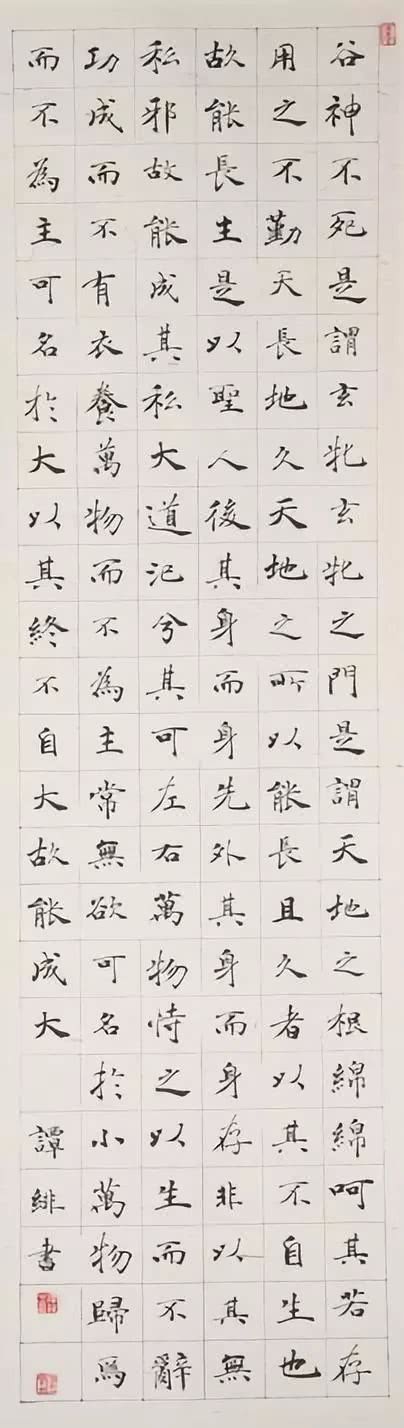 谷神不死是謂玄牝玄牝之門是謂天地之根綿綿呵其若存
用之不勤天長地久天地之所以能長且久者以其不自生也
故能長生是以聖人後其身而身先外其身而身存非以其無
私邪故能成其私大道氾兮其可左右萬物恃之以生而不辭
功成而不有衣養萬物而不為主常無欲可名於小萬物歸焉
而不為主可名於大以其終不自大故能成大
譚緋書